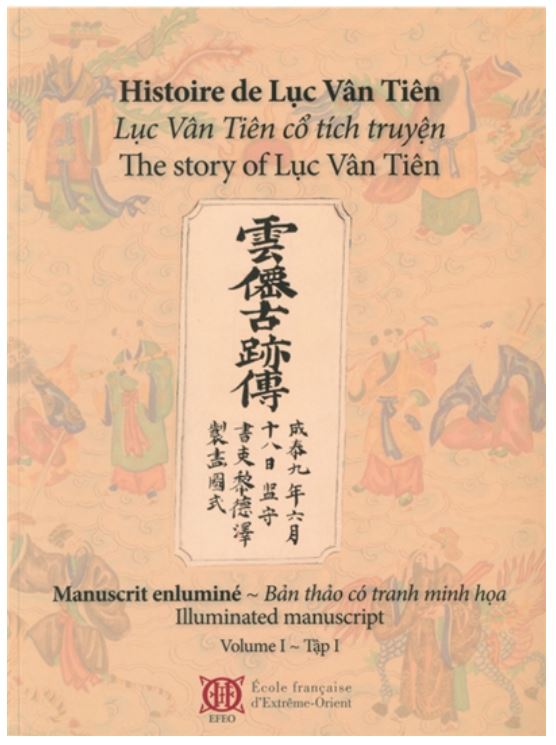 Histoire de Lục Vân Tiên
Lục Vân Tiên cổ tích truyện
The story of Lục Vân Tiên
雲僊古跡傳
成泰九年六月
十八日監守
書吏黎德澤
製畫圖式
Manuscrit enluminé ~ Bản thảo có tranh minh họa
Illuminated manuscript
Volume I ~ Tập I
EFEO
École française
d'Extrême-Orient